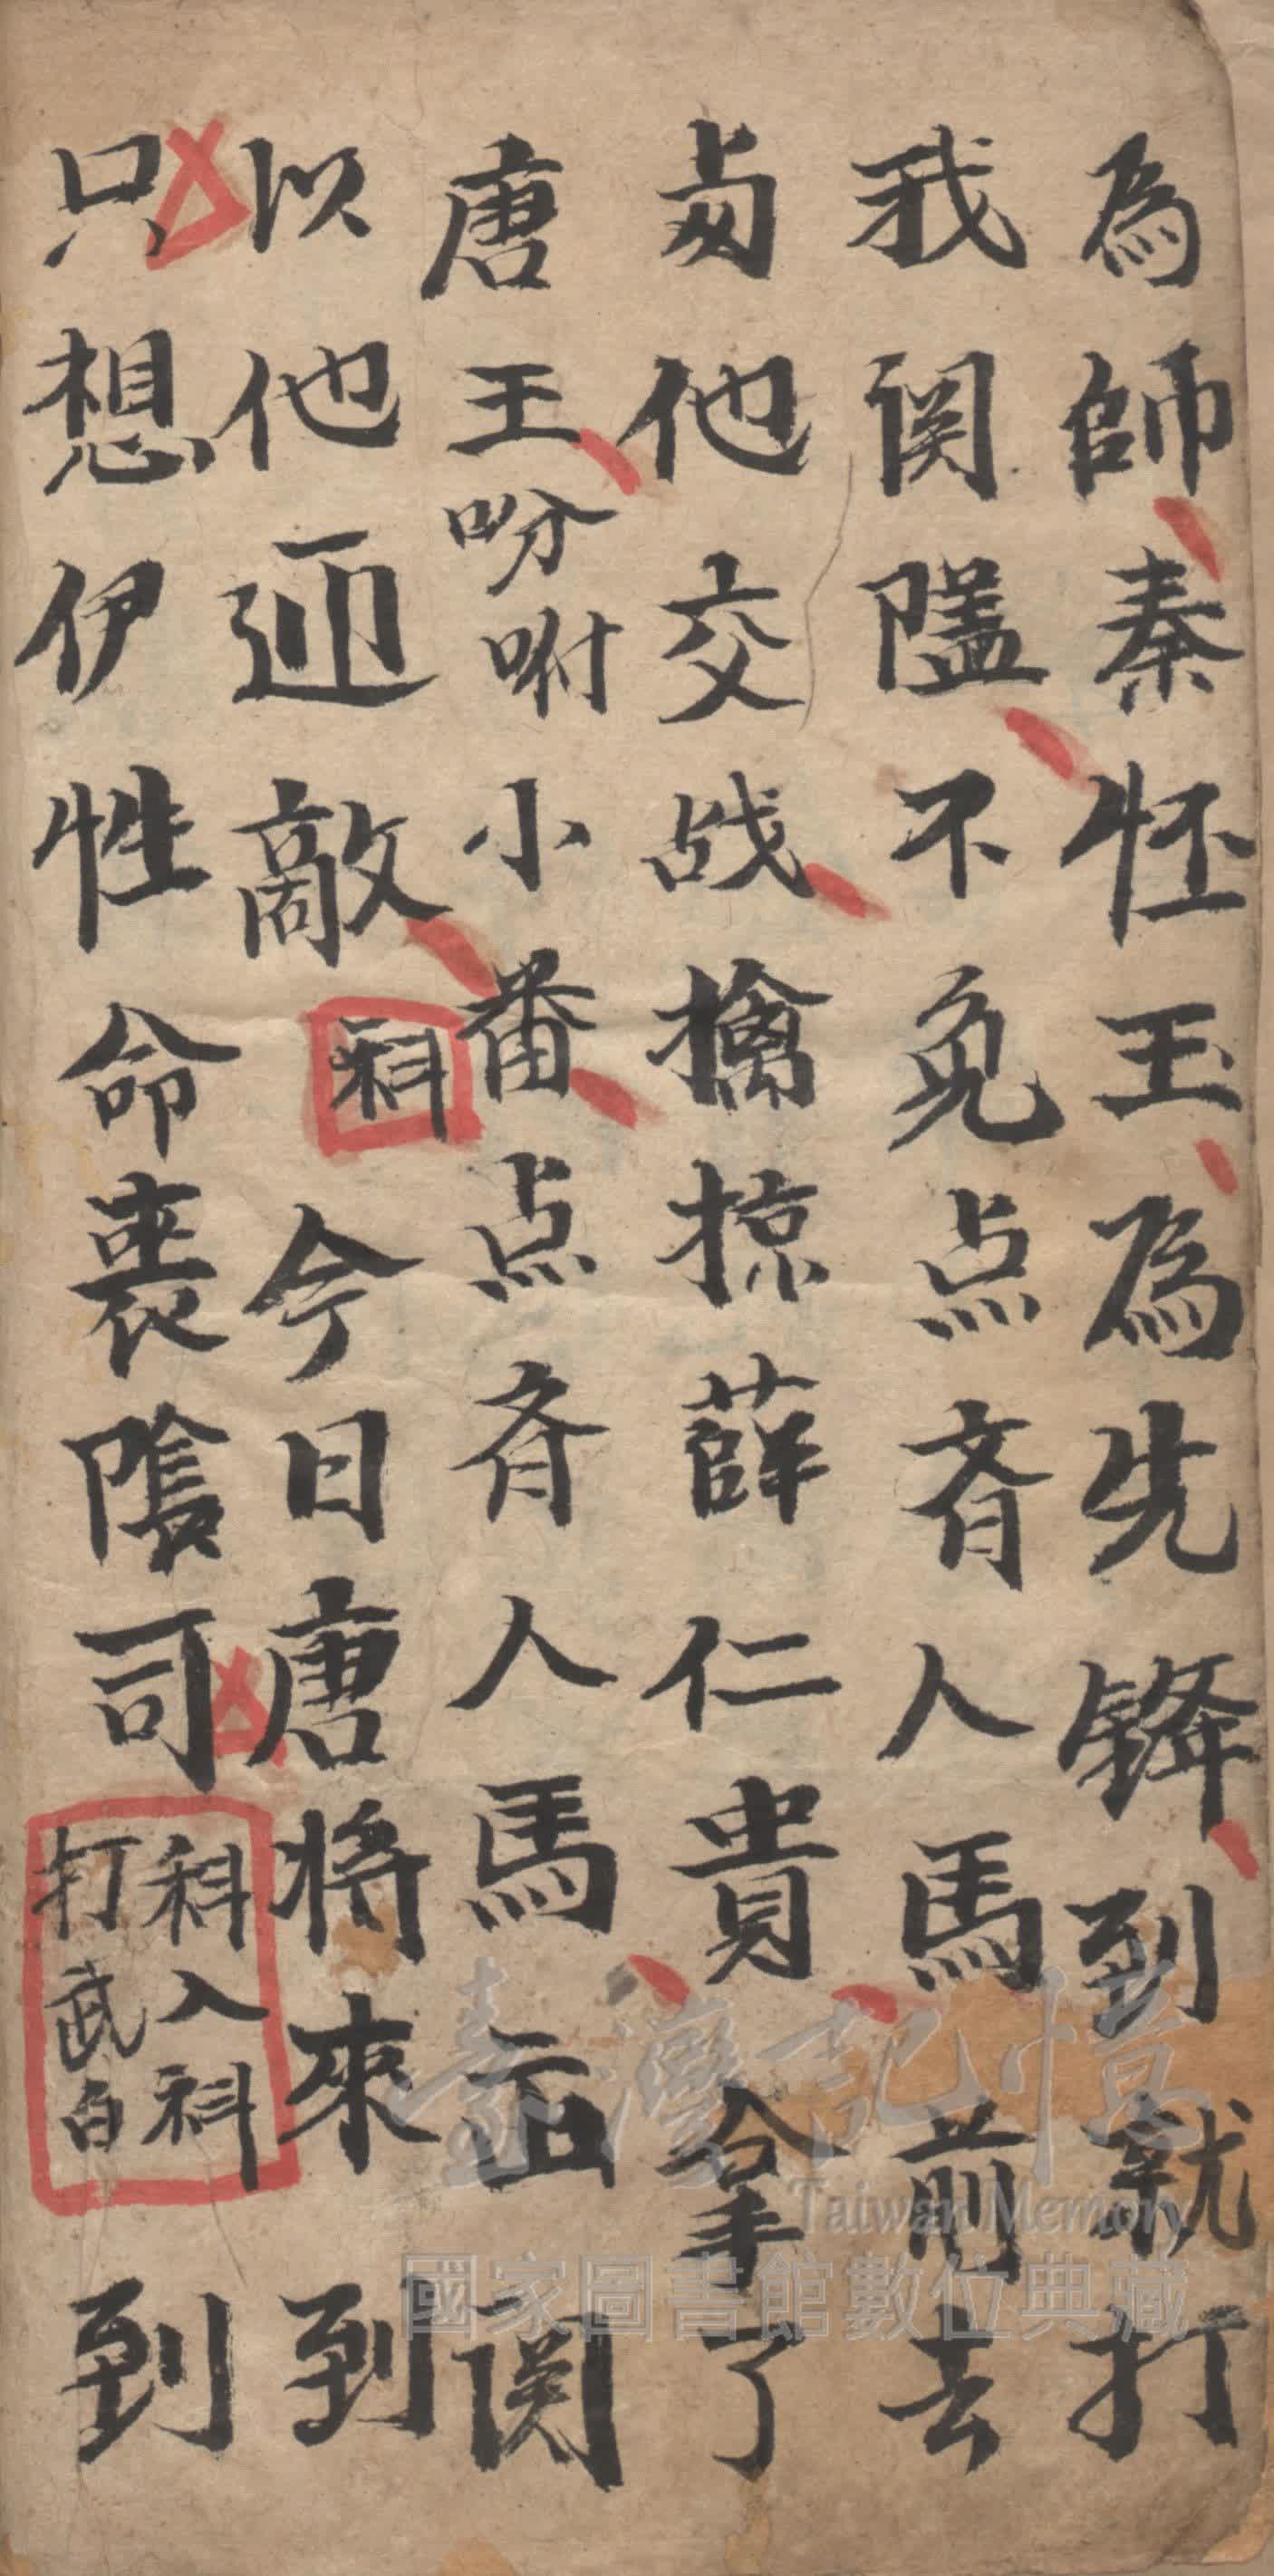 為師秦怀玉為先鋒到就打
我関隘不免点斉人馬前去
与他交战擒掠薛仁貴拿了
唐王吩咐小番点斉人馬出関
以他迎敵科今日唐將來到
只想伊性命喪陰司科入科打武白到
臺灣記憶
Taiwan Memory
國家圖書館數位典藏